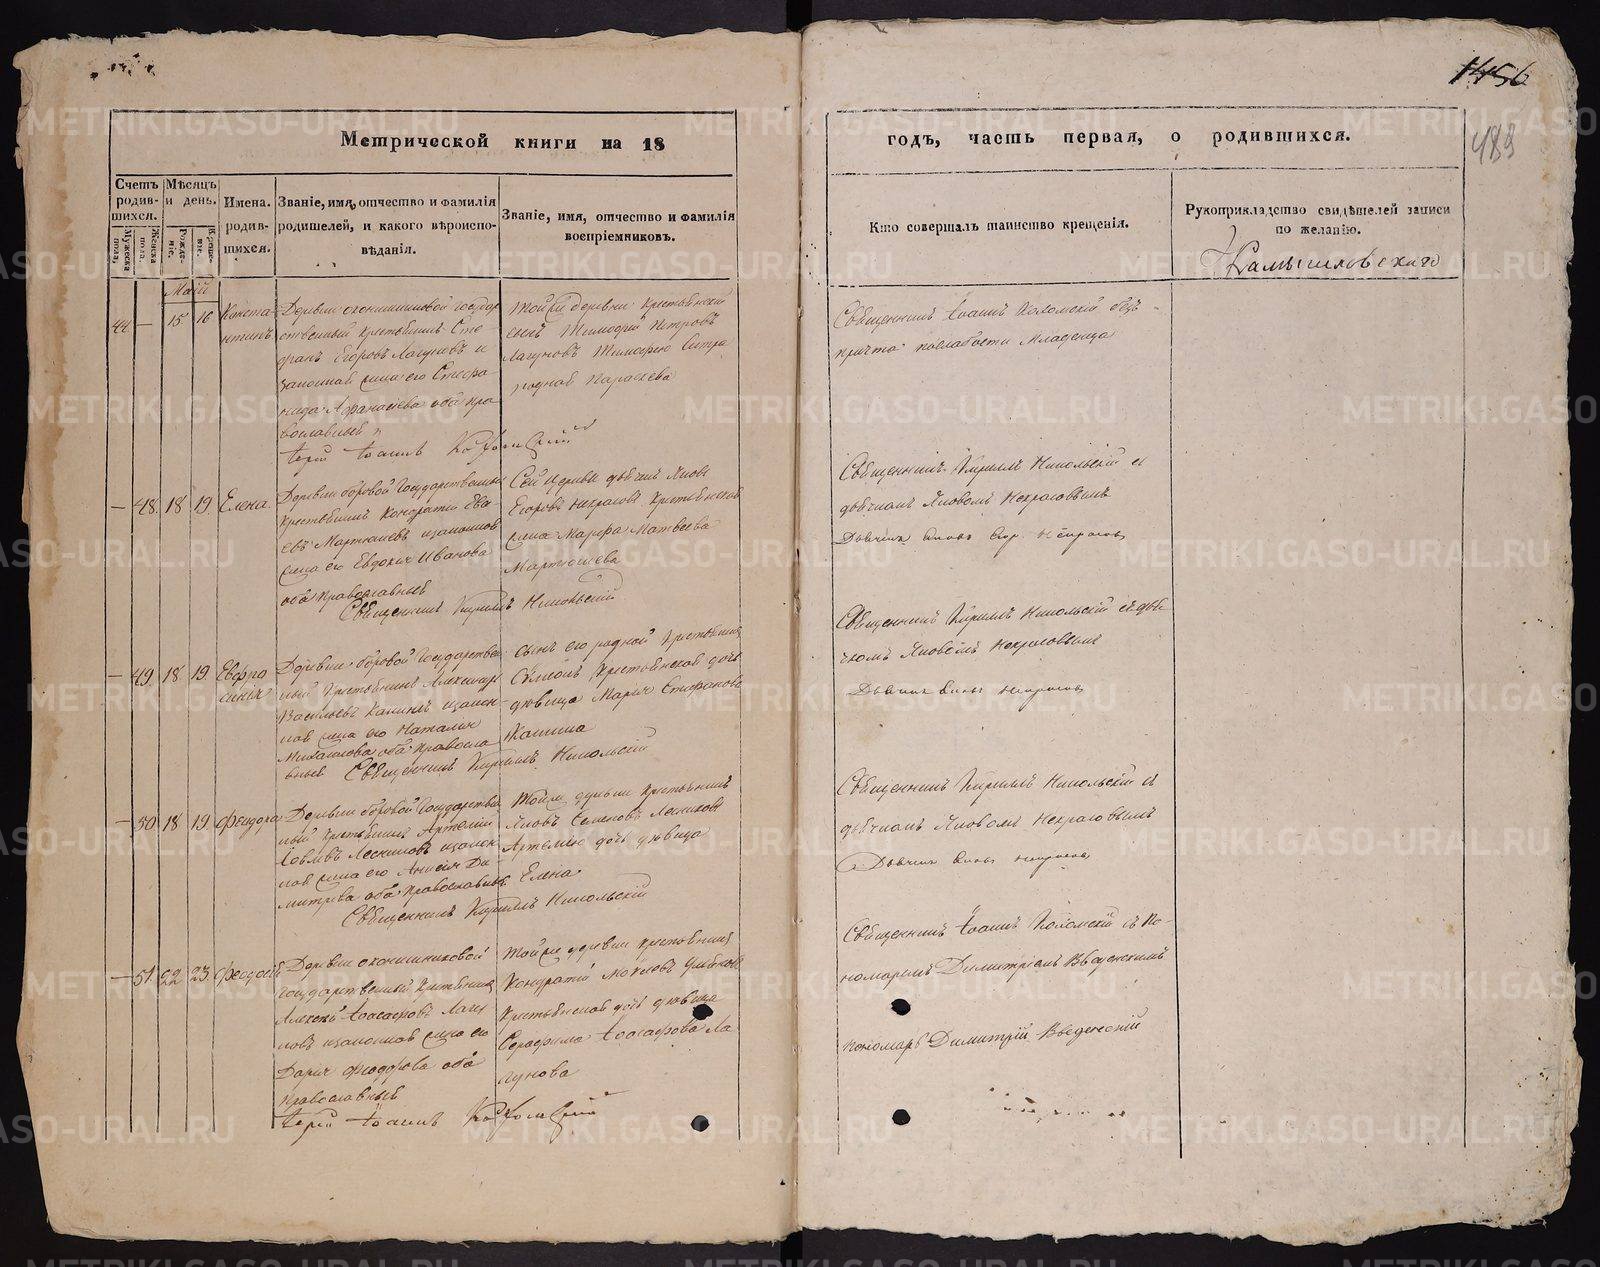 1456
489
Метрической книги на 18
годъ, часть первая, о родившихся.
Счетъ родив-шихся.
Мужеска пола.
Женска пола.
Мѣсяцъ и день.
Рожде-нія.
Креще-нія.
Имена. родив-шихся.
Званіе, имя, отчество и фамилія родителей, и какого вѣроиспо-вѣданія.
Званіе, имя, отчество и фамилія воспріемниковъ.
Кто совершалъ таинство крещенія.
Рукоприкладство свидѣтелей записи по желанію.
Камышловскаго
Маій
44 — 15 16 Конста-нтинъ
Деревни государ
ственный крестьянинъ Сте-
фанъ Егоровъ Лагуновъ и
законная жена его Стефа-
нида Афанасьева оба пра
вославные
Іерей Іоаннъ Коломскій
Той же деревни крестьянскій
сынъ Тимофей Петровъ
Лагуновъ
родная Параскева
Священникъ Іоаннъ Коломскій безъ
причта по слабости младенца
— 48. 18 19. Елена.
Деревни боровой Государственный
крестьянинъ Кондратій
Мартюшевъ и законная
жена его Евдокія Иванова
оба православные
Священникъ Кириллъ Никольскій
дьячекъ Яковъ
Егоровъ Некрасовъ крестьянская
жена Марфа Матвеева
Мартюшева
Священникъ Кириллъ Никольскій съ
дьячкомъ Яковомъ Некрасовымъ
Дьячекъ Яковъ Егор. Некрасовъ
— 49. 18 19. Евфро синія
Деревни боровой Государствен
ный крестьянинъ Александръ
Васильевъ и закон-
ная жена его Наталья
Михайлова оба правосла
вные Священникъ Кириллъ Никольскій
сынъ его родной крестьянинъ
крестьянская дочь
дѣвица Марія Стефанова
Священникъ Кириллъ Никольскій съ дья
чкомъ Яковомъ Некрасовымъ
Дьячекъ Яковъ Некрасовъ
— 50. 18 19. Феодора
Деревни боровой Государствен
ный крестьянинъ Артемій
Лесниковъ и закон
ная жена его Анисія Ди
митріева оба православные
Священникъ Кириллъ Никольскій
Той же деревни крестьянинъ
Яковъ Семеновъ Лесниковъ
дочь дѣвица
Елена
Священникъ Кириллъ Никольскій съ
дьячкомъ Яковомъ Некрасовымъ
Дьячекъ Яковъ Некрасовъ
— 51. 22 23.
Деревни
Государственный крестьянинъ
Алексѣй Іоасафовъ Лагу
новъ и законная жена его
Дарія Феодорова оба
православные
Іерей Іоаннъ Коломскій
Той же деревни крестьянинъ
Кондратій
крестьянская дочь дѣвица
Серафима Іоасафова Ла
гунова
Священникъ Іоаннъ Коломскій съ по-
номаремъ Димитріемъ Введенскимъ
Пономарь Димитрій Введенскій
METRIKI.GASO-URAL.RU